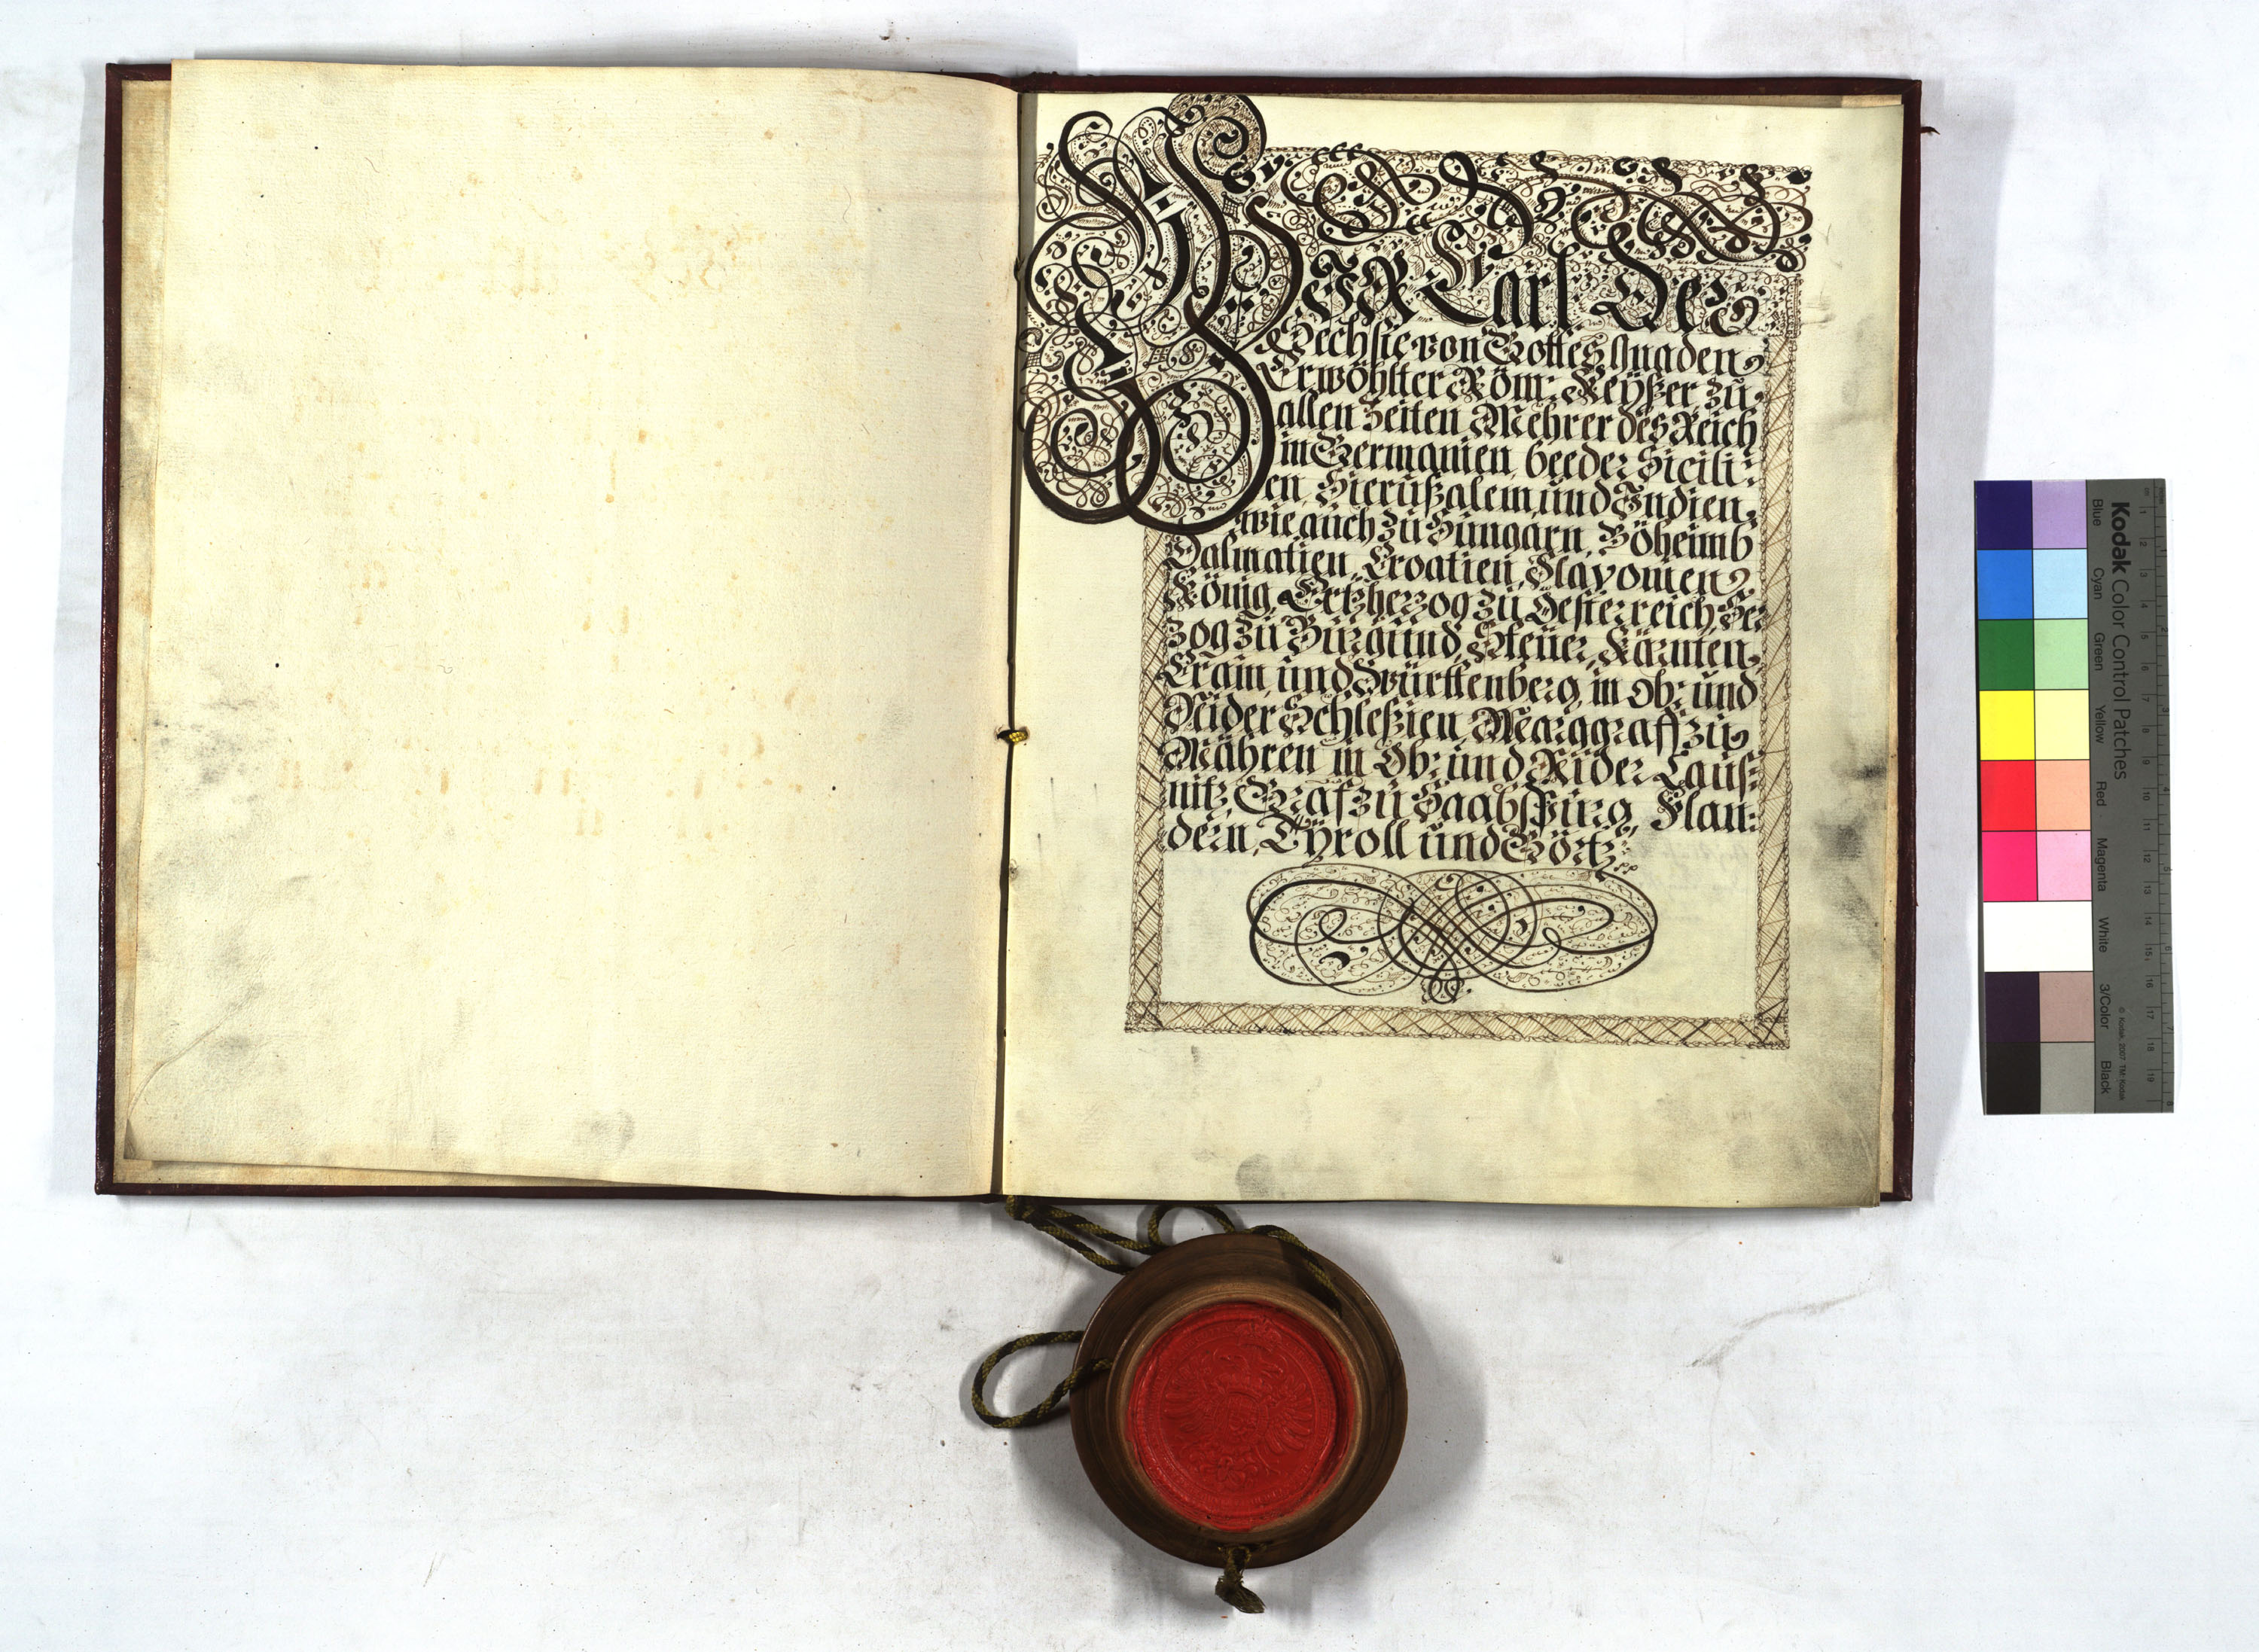 WIR Carl Der
Sechste von Gottes gnaden
Erwöhlter Röm: Keÿßer zu
allen Zeiten Mehrer des Reich
in Germanien, beeder Sicili:
en, Hierußalem, und Indien,
wie auch zu Hungarn, Böheimb
Dalmatien, Croatien, Slavonien
König, Ertzherzog zu Oesterreich, Her
zog zu Burgund, Steüer, Kärnten,
Crain, und Württenberg, in ob: und
Nider Schleßien, Marggraff zu
Mähren, in Ob: und Nider Laus:
nitz, Graf zu Haabspurg, Flan:
dern, Tÿroll und Görtz
Kodak Color Control Patches
Blue Cyan Green Yellow Red Magenta White 3/Color Black
© Kodak, 2007 TM: Kodak
cm 1 2 3 4 5 6 7 8 9 10 11 12 13 14 15 16 17 18 19